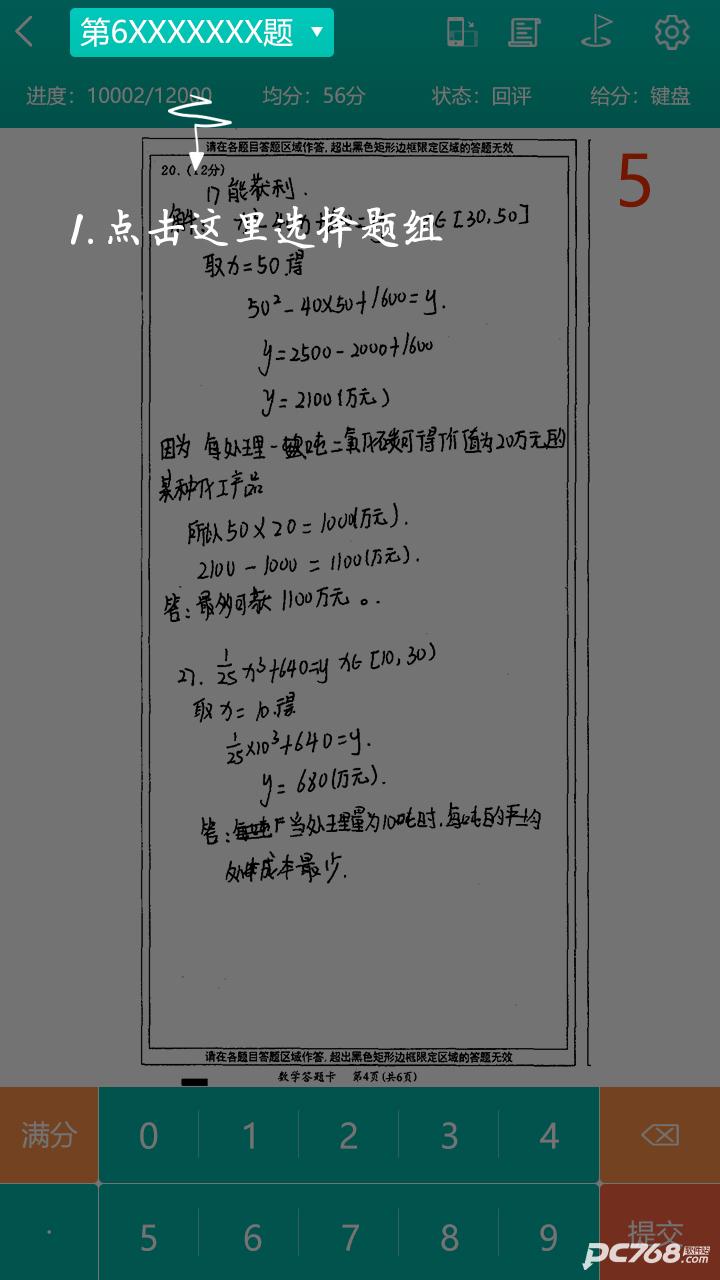 第6XXXXXXX题 ▼
进度：10002/12000 均分：56分 状态：回评 给分：键盘
请在各题目答题区域作答，超出黑色矩形边框限定区域的答题无效
20．(12分)
5
1) 能获利．
1.点击这里选择题组
∈[30,50]
取x=50得
50²-40×50+1600=y．
y=2500-2000+1600
y=2100(万元)
因为 每处理一吨二氧化碳可得价值为20万元的
某种化工产品
所以50×20=1000(万元)．
2100-1000=1100(万元)．
答：最多可获 1100万元。
27．1/25x³+640=y x∈[10,30)
取x=10得
1/25×10³+640=y．
y=680(万元)．
答：当处理量为10吨时，每吨的平均
成本最少．
请在各题目答题区域作答，超出黑色矩形边框限定区域的答题无效
数学答题卡 第4页(共6页)
满分 0 1 2 3 4
. 5 6 7 8 9 提交
PC768软件站.com